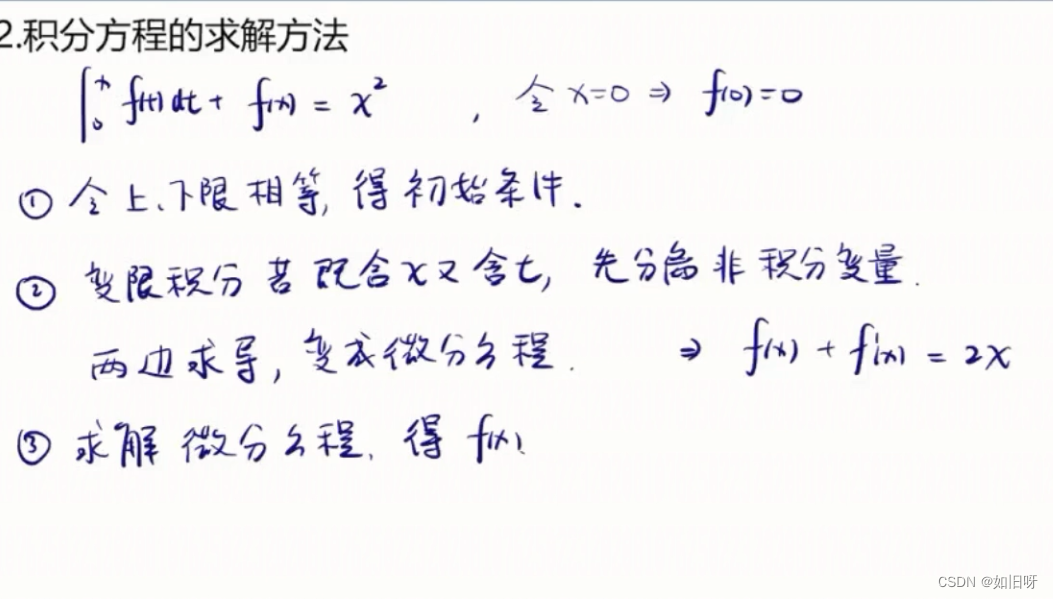 2.积分方程的求解方法
∫₀ˣ f(t)dt + f(x) = x² , 令 x=0 ⇒ f(0)=0
① 令上、下限相等, 得初始条件.
② 变限积分若既含x又含t, 先分离非积分变量.
两边求导, 变成微分方程. ⇒ f(x) + f'(x) = 2x
③ 求解微分方程. 得 f(x)
CSDN @如旧呀